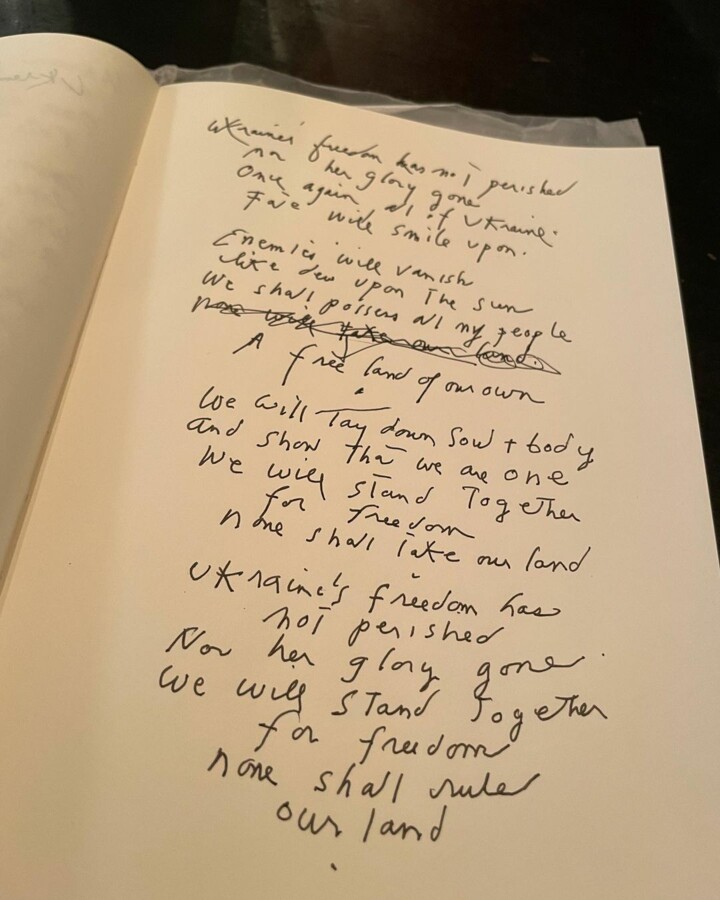 Ukraine's freedom has not perished
nor her glory gone
Once again all of Ukraine.
Fate will smile upon.
Enemies will vanish
like dew upon The sun
We shall possess all my people
None will take our land.
A free land of our own
We will lay down soul + body
and show that we are one
We will stand Together
for freedom
none shall take our land
Ukraine's freedom has
not perished
Nor her glory gone
We will stand Together
for freedom
none shall rule
our land